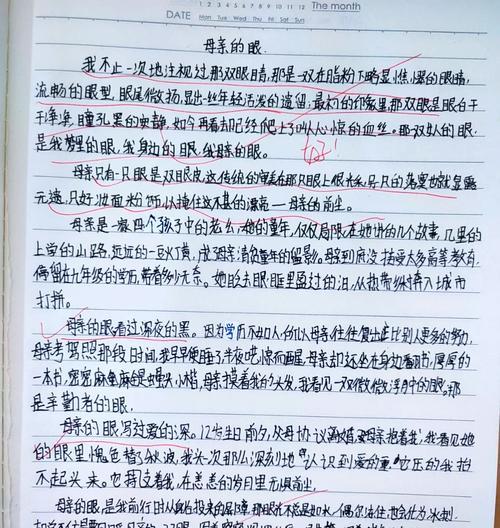 1 2 3 4 5 6 7 8 9 10 11 12 The month
DATE Mon Tue Wed Thu Fri Sat Sun
母亲的眼
我不止一次地注视过那双眼睛,那是一双在脂粉下略显憔悴的眼睛,
流畅的眼型,眼尾微扬,显出些年轻活泼的遗留,最初的印象里那双眼是眼白干
干净净,瞳孔黑的安静,如今再看去却已经爬上了叫人心惊的血丝。那双的眼,
是我梦里的眼,我身边的眼,我母亲的眼。
好!
母亲只有一只眼是双眼皮,这传统的审美在那只眼上很关系,另只的落寞也就显露
无遗,只好妆面粉饰,以掩住这不甚的 — 母亲的前尘。
母亲是一家四个孩子中的老幺,她的童年,仅仅局限在她讲的几个故事,几里的
上学的山路,远远的一豆火黄,成了母亲清贫童年的留影。母到底没接受太多高等教育,
停留在九年级的学历,带着多少无奈。她眨去眼眶里盈过的泪,从热带乡村奔入城市
打拼。
母亲的眼看过深夜的黑。因为学历不如人,所以母亲往往复出比别人更多的努力,
母亲考驾照那段时间,我早早便睡了,半夜吃惊而醒,母亲却还坐在身边看书,厚厚的
一本书,密密麻麻是题大小楷,母亲摸着我的头发,我看见一双微微浮肿的眼。那
是辛勤者的眼。
母亲的眼写过爱的深。12岁生日前夕,父母协议离婚,母亲抱着我,我看见她
的眼里愧色替了秋波,我头一次那么深刻地认识到爱的重,它压的我抬
不起头来。它扶持着我,在恣意的岁月里无惧前尘。
母亲的眼,是我前行时从背后投来的屏障,那眼不能是如水,偶尔流住,也会化为冰刺,